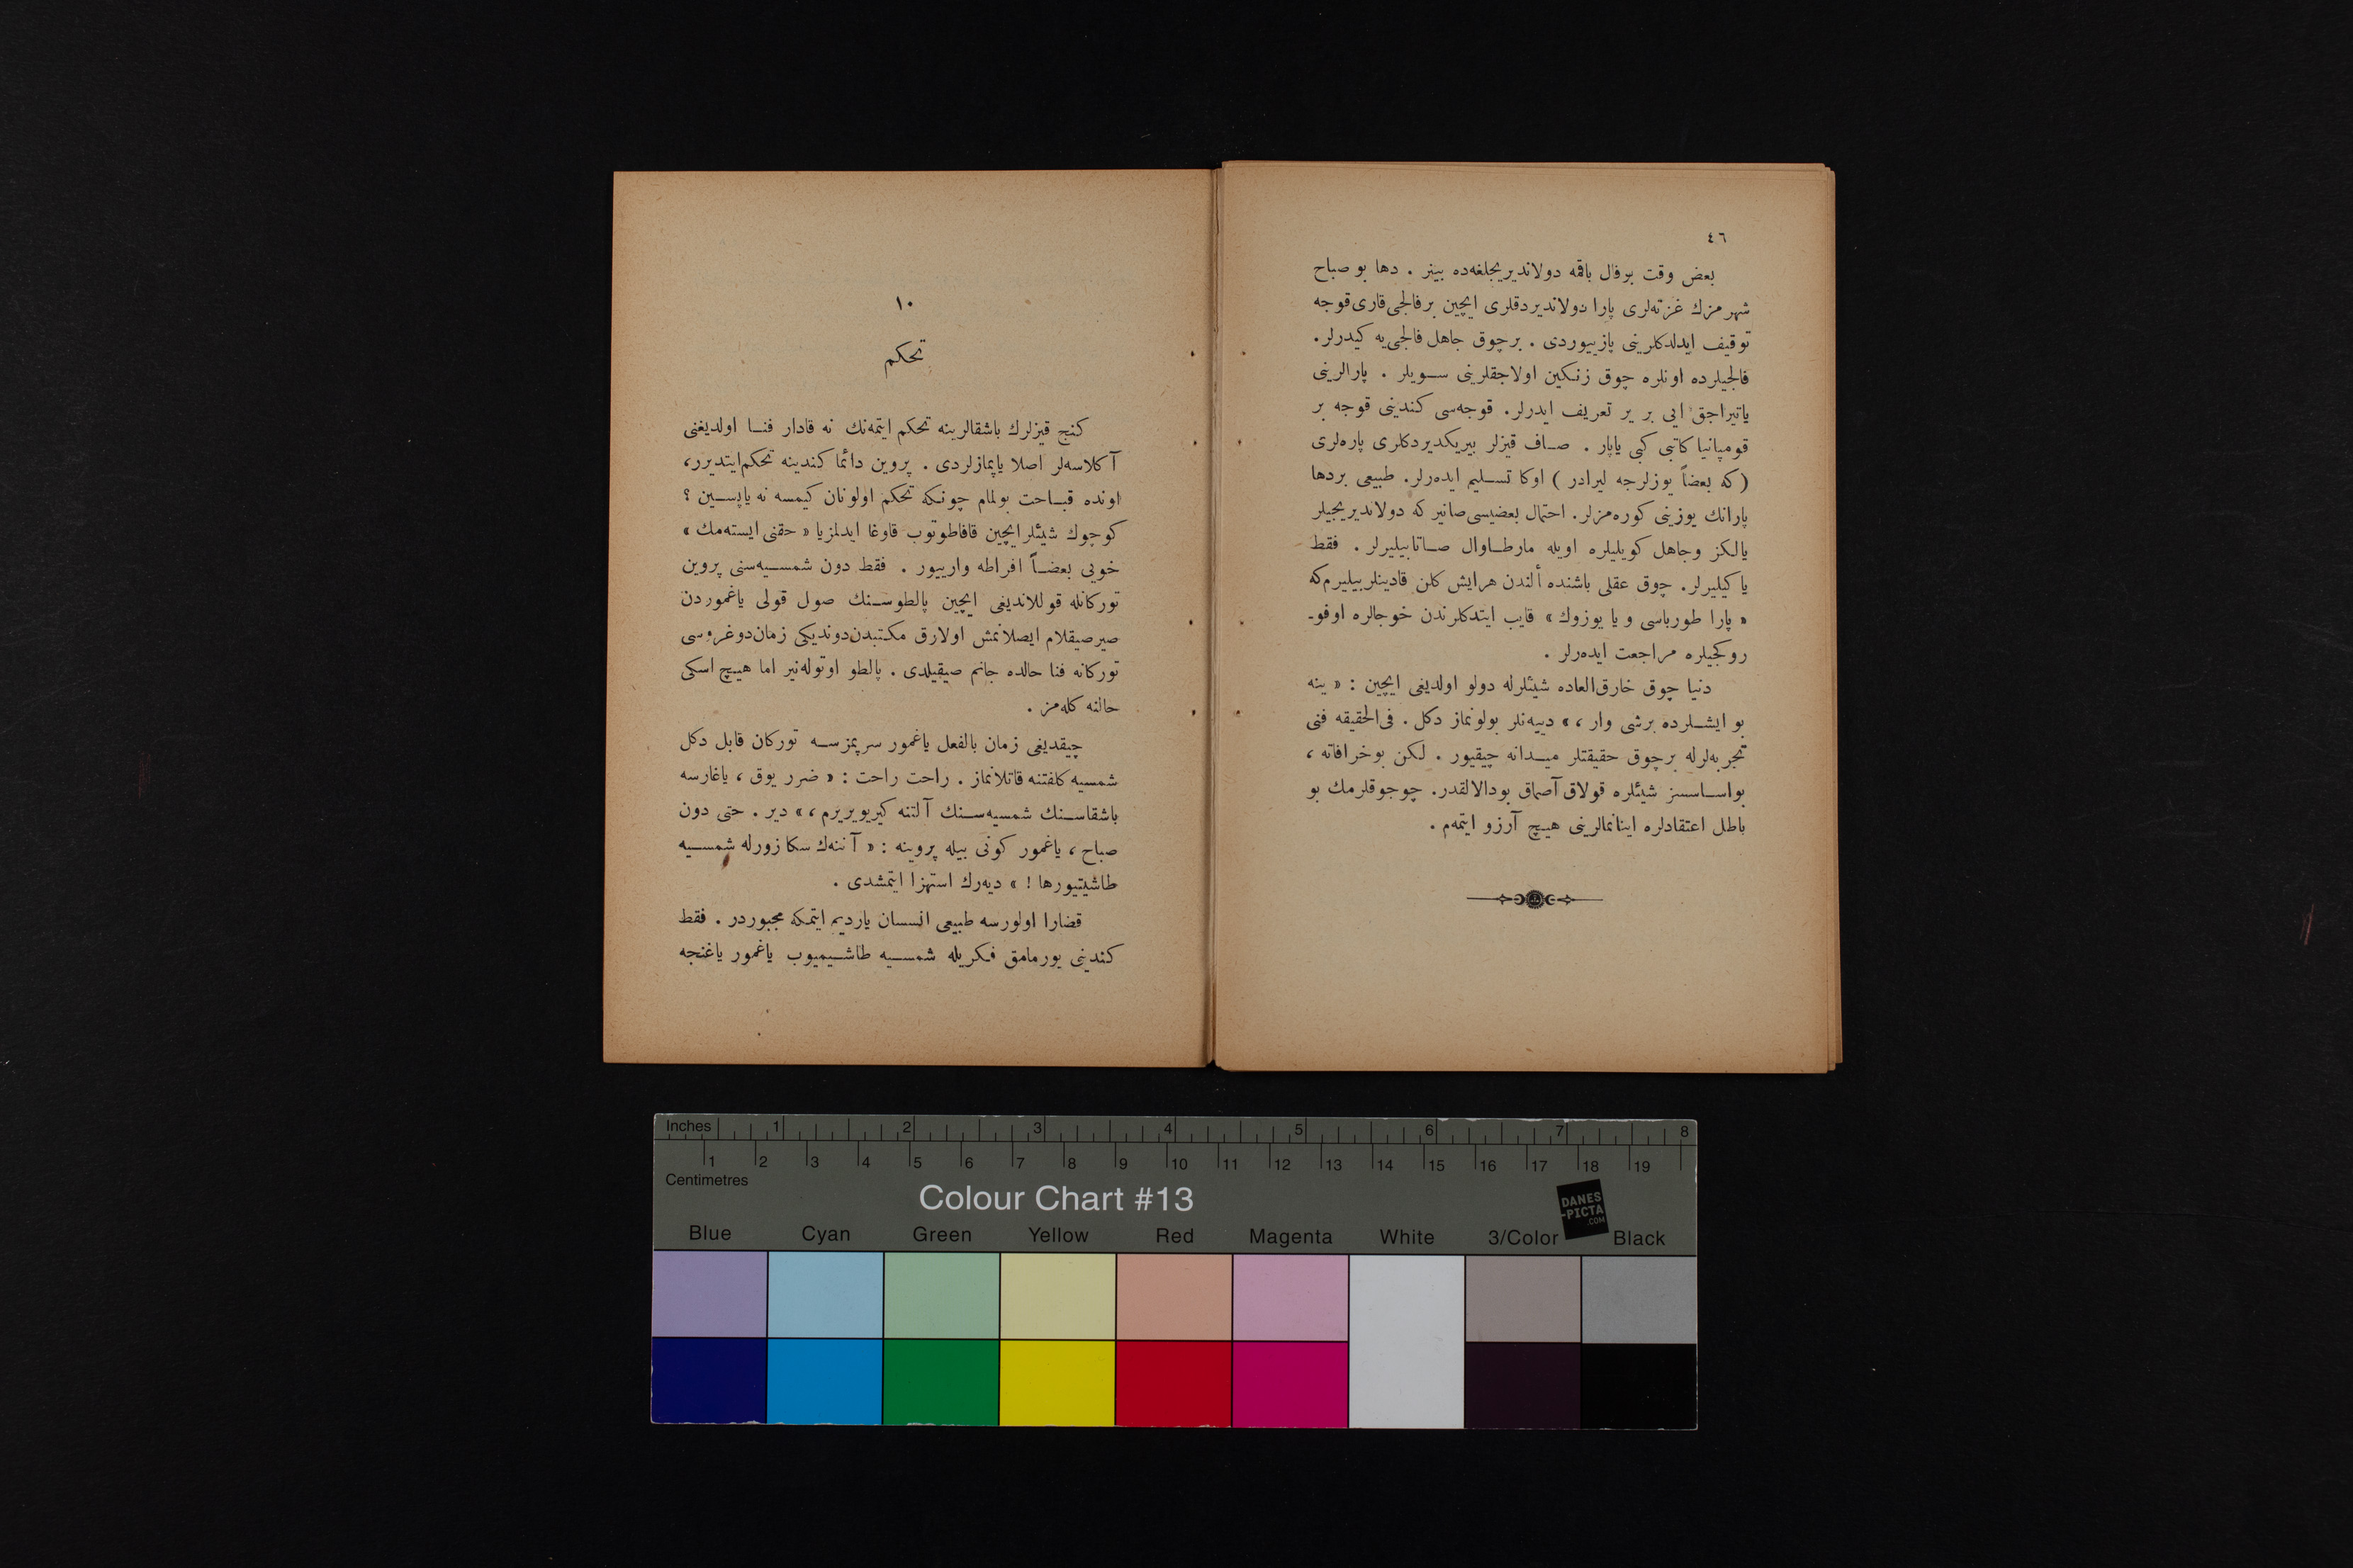 ٤٦
بعض وقت برفال باقمه دولاندیریجلغه‌ده بینر . دها بو صباح
شهرمزك غزته‌لری پارا دولاندیردقلری ایچین برفالجی قاری قوجه
توقیف ایدلدکلرینی یازییوردی . برچوق جاهل فالجی‌یه کیدرلر.
فالجیلرده اونلره چوق زنکین اولاجقلرینی سـویلر . پارالرینی
یاتیراجق ایی بر یر تعریف ایدرلر. قوجه‌سی کندینی قوجه بر
قومپانیا کاتبی کبی یاپار . صـاف قیزلر بیریکدیردکلری پاره‌لری
(که بعضاً یوزلرجه لیرادر ) اوکا تسـلیم ایده‌رلر. طبیعی بردها
پارانك یوزینی کوره‌مزلر. احتمال بعضیسی صانیر که دولاندیریجیلر
یالکز وجاهل کویلیلره اویله مارطـاوال صـاتابیلیرلر . فقط
یاکیلیرلر. چوق عقلی باشنده ألندن هرایش کلن قادینلر بیلیرم که
« پارا طورباسی و یا یوزوك » قایب ایتدکلرندن خوجالره اوفو-
روکجیلره مراجعت ایده‌رلر .
دنیا چوق خارق‌العاده شیئلرله دولو اولدیغی ایچین : « ینه
بو ایشـلرده برشی وار ، » دییه‌نلر بولونماز دکل . فی‌الحقیقه فنی
تجربه‌لرله برچوق حقیقتلر میـدانه چیقیور . لکن بوخرافاته ،
بواسـاسسز شیئلره قولاق آصماق بودالالقدر. چوجوقلرمك بو
باطل اعتقادلره اینانمالرینی هیچ آرزو ایتمه‌م .
١٠
تحکم
کنج قیزلرك باشقالرینه تحکم ایتمه‌نك نه قادار فنـا اولدیغنی
آکلاسه‌لر اصلا یاپمازلردی . پروین دائما کندینه تحکم ایتدیرر،
اونده قبـاحت بولمام چونکه تحکم اولونان کیمسه نه یاپسـین ؟
کوچوك شیئلر ایچین قافاطوتوب قاوغا ایدلمزیا « حقنی ایسته‌مك »
خویی بعضـاً افراطه وارییور . فقط دون شمسـیه‌سنی پروین
تورکانله قوللاندیغی ایچین پالطوسـنك صول قولی یاغموردن
صیرصیقلام ایصلانمش اولارق مکتبدن دوندیکی زمان دوغروسی
تورکانه فنا حالده جانم صیقیلدی . پالطو اوتوله‌نیر اما هیچ اسکی
حالنه کله‌مز .
چیقدیغی زمان بالفعل یاغمور سرپمزسـه تورکان قابل دکل
شمسیه کلفتنه قاتلانماز . راحت راحت : « ضرر یوق ، یاغارسه
باشقاسـنك شمسیه‌سـنك آلتنه کیریویریرم ، » دیر . حتی دون
صباح ، یاغمور کونی بیله پروینه : « آننه‌ك سکا زورله شمسـیه
طاشیتییورها ! » دیه‌رك استهزا ایتمشدی .
قضارا اولورسه طبیعی انسـان یاردیم ایتمکه مجبوردر . فقط
کندینی یورمامق فیکریله شمسـیه طاشـیمیوب یاغمور یاغنجه
Inches 1 2 3 4 5 6 7 8
1 2 3 4 5 6 7 8 9 10 11 12 13 14 15 16 17 18 19
Centimetres
Colour Chart #13
DANES
-PICTA
.COM
Blue Cyan Green Yellow Red Magenta White 3/Color Black